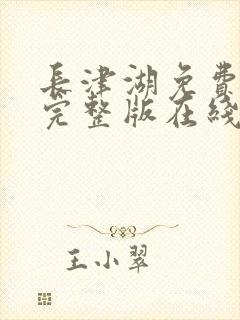 長津湖免費
完整版在綫
王小翠